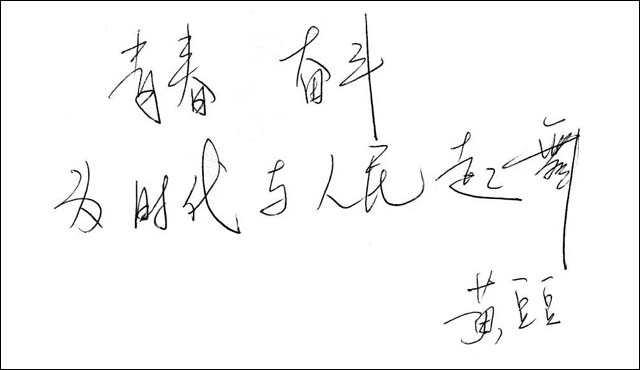 青春 奋斗
为时代与人民起舞
黄豆豆